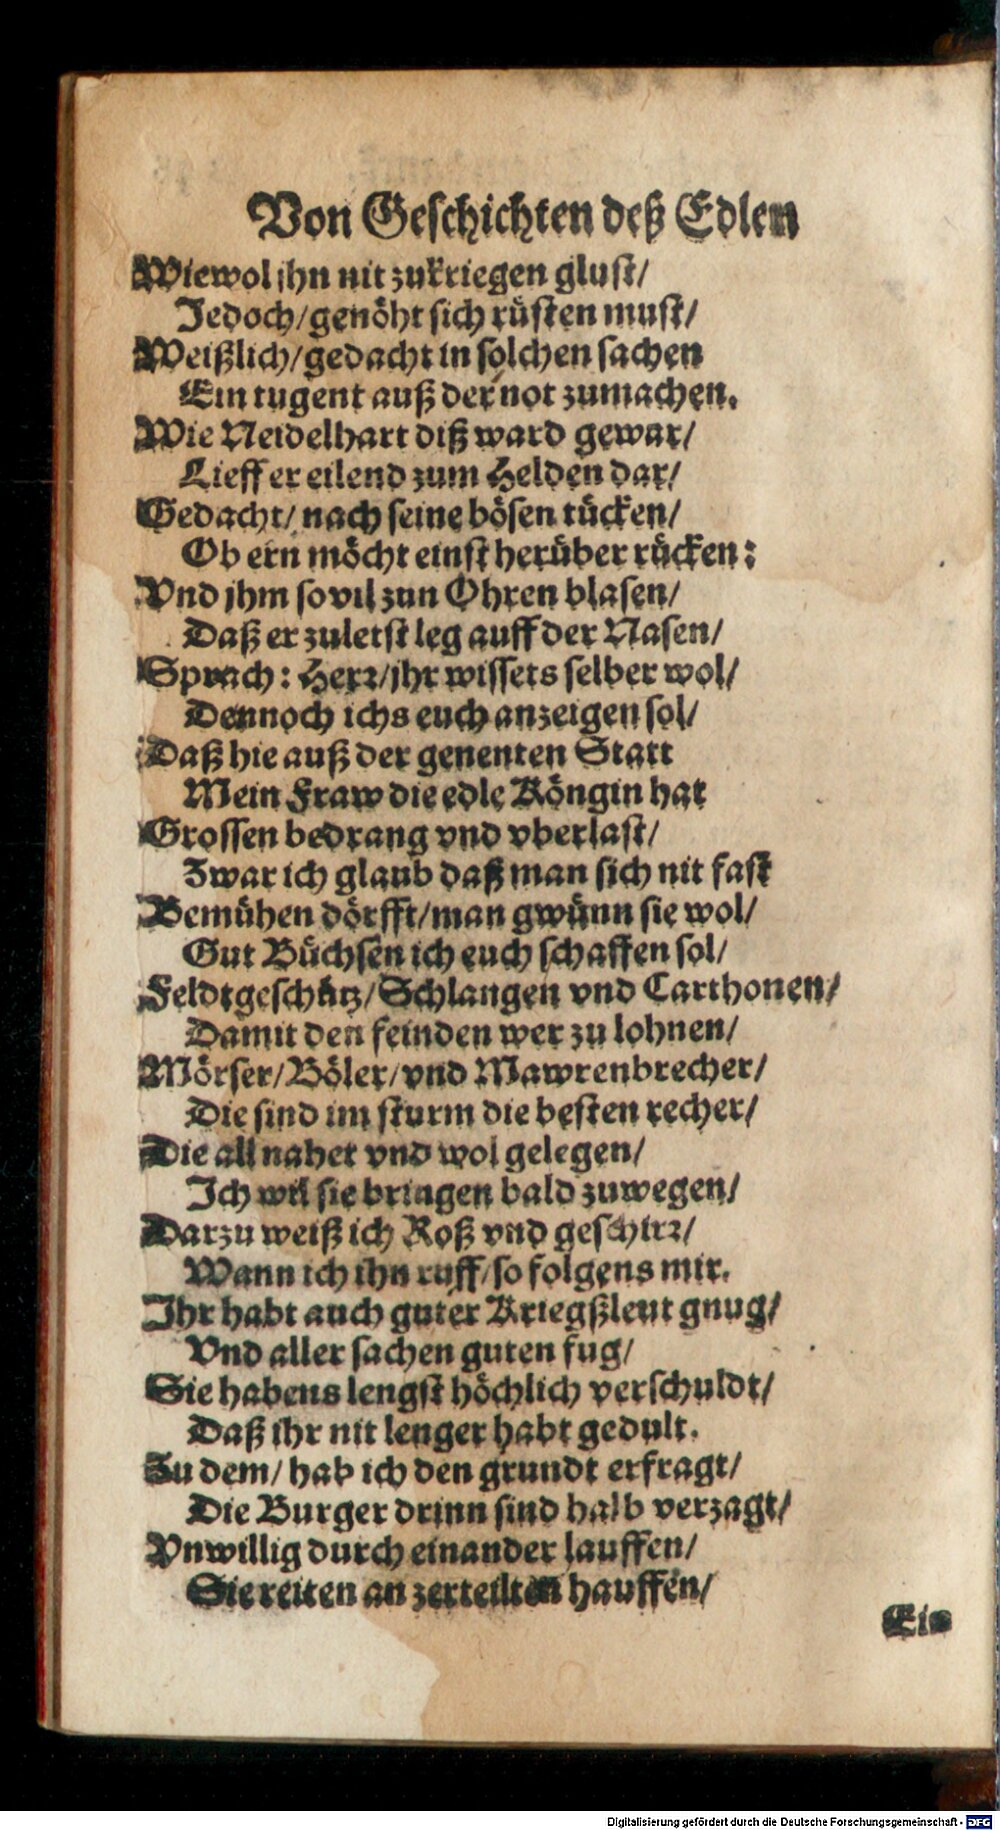 Von Geschichten deß Edlen
Wiewol jhn nit zukriegen glust/
Jedoch/genöht sich rüsten must/
Weißlich/gedacht in solchen sachen
Ein tugent auß der not zumachen.
Wie Neidelhart diß ward gewar/
Lieff er eilend zum Helden dar/
Gedacht/nach seine bösen tücken/
Ob ern möcht einst herüber rücken:
Vnd jhm sovil zun Ohren blasen/
Daß er zuletst leg auff der Nasen/
Sprach: Herr/jhr wissets selber wol/
Dennoch ichs euch anzeigen sol/
Daß hie auß der genenten Statt
Mein Fraw die edle Köngin hat
Grossen bedrang vnd vberlast/
Zwar ich glaub daß man sich nit fast
Bemühen dörfft/man gwünn sie wol/
Gut Büchsen ich euch schaffen sol/
Feldtgeschütz/Schlangen vnd Carthonen/
Damit den feinden wer zu lohnen/
Mörser/Böler/vnd Mawrenbrecher/
Die sind im sturm die besten recher/
Die all nahet vnd wol gelegen/
Ich wil sie bringen bald zuwegen/
Darzu weiß ich Roß vnd geschirr/
Wann ich ihn ruff/so folgens mir.
Ihr habt auch guter Kriegßleut gnug/
Vnd aller sachen guten fug/
Sie habens lengst höchlich verschuldt/
Daß ihr nit lenger habt gedult.
Zu dem/hab ich den grundt erfragt/
Die Burger drinn sind halb verzagt/
Vnwillig durch einander lauffen/
Sie reiten an zerteilten hauffen/
Ein
Digitalisierung gefördert durch die Deutsche Forschungsgemeinschaft - DFG